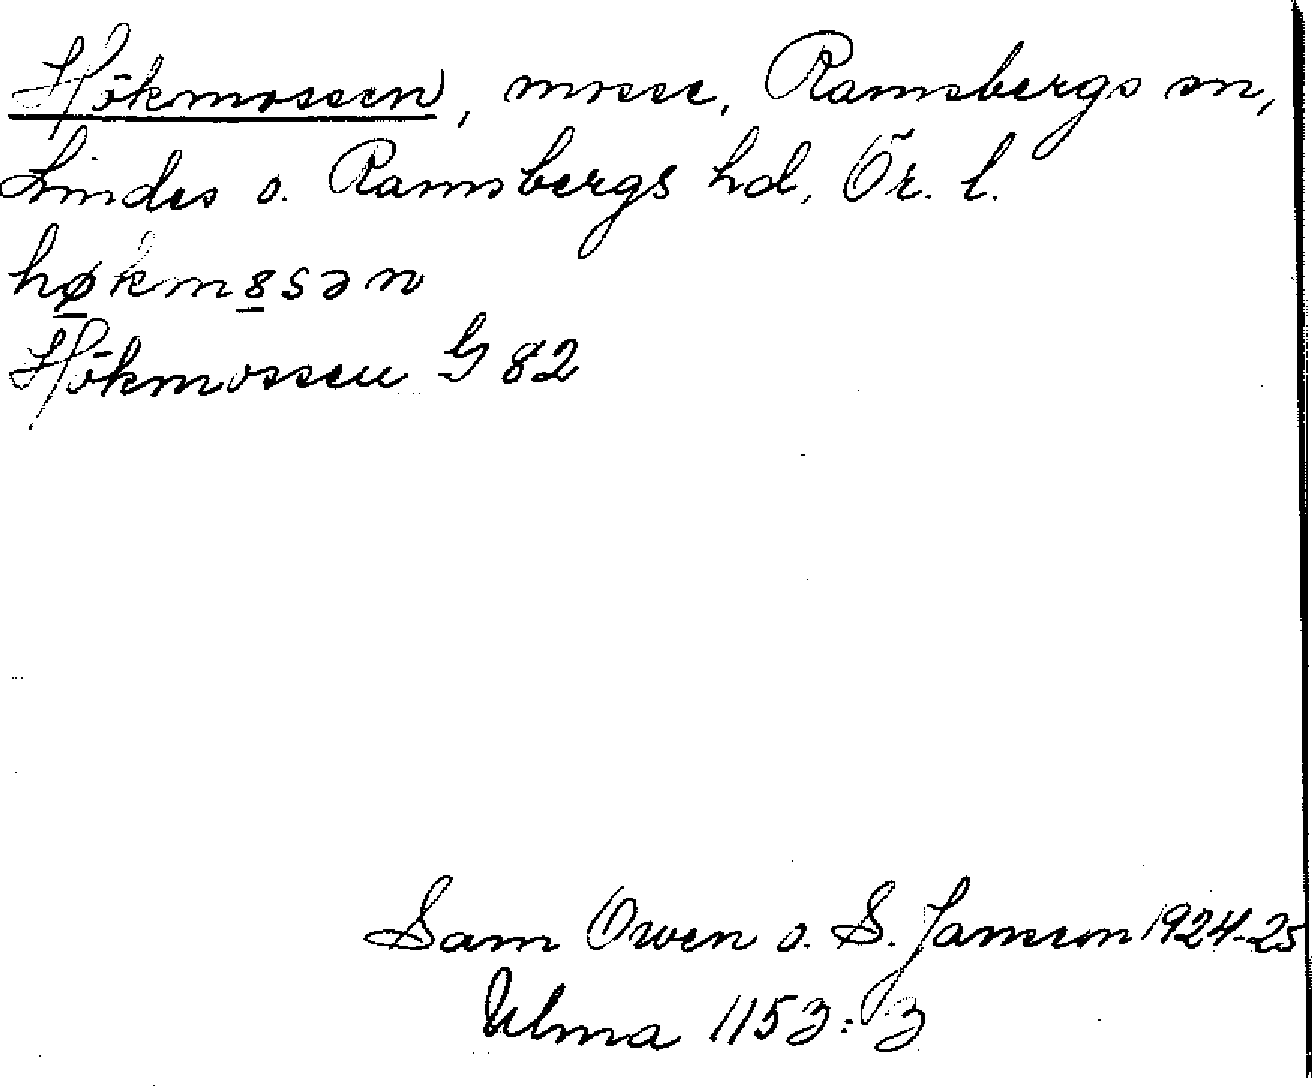 Hökmossen, mosse, Ramsbergs sn,
Lindes o. Ramsbergs hd, Ör. l.
høkm8sən
Hökmossen G 82
Sam Owen o. S. Janson 1924-25
Ulma 1153:3